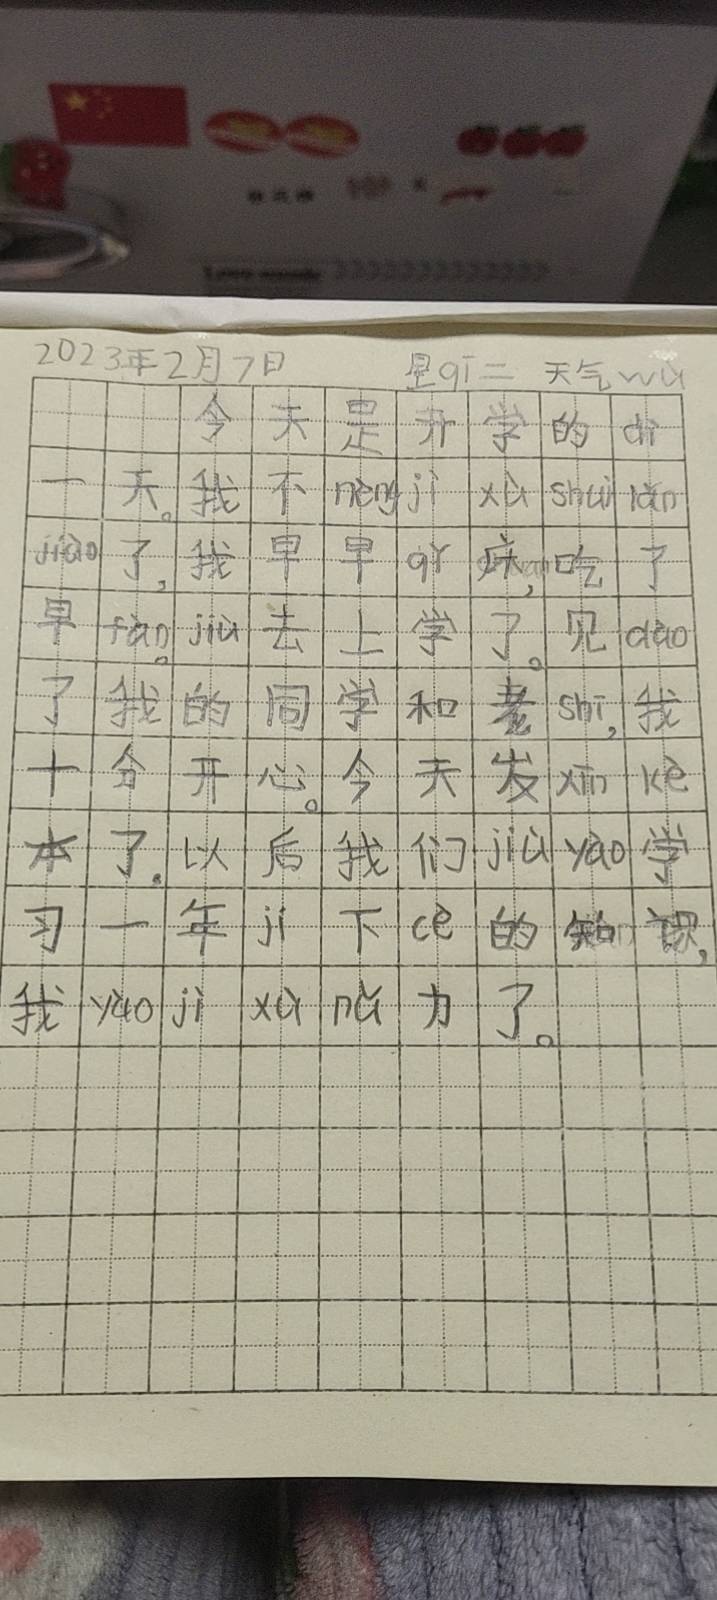 2023年2月7日 星qī二 天气wù
今天是开学的dì
一天。我不néngjì xùshuì lǎn
jiào了,我早早qǐ床,吃了
早fàn。jiù去上学了。见dào
了我的同学和老shī,我
十分开心。今天发xīn kè
本了。以后我们jiù yào学
习一年jí下cè的知识,
我yào jì xù nǔ力了。